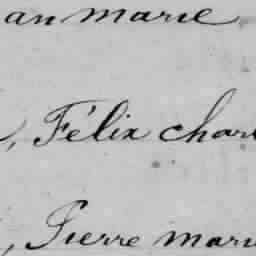 an marie
, Félix char
, Pierre mari